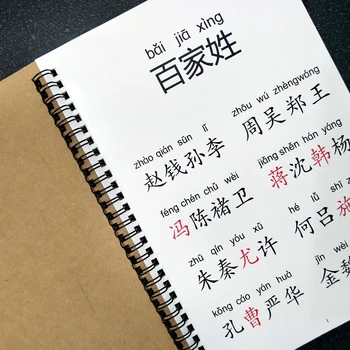 bǎi jiā xìng
百家姓
zhào qián sūn lǐ zhōu wú zhèngwáng
赵钱孙李 周吴郑王
féng chén chǔ wèi jiǎng shěn hán yáng
冯陈褚卫 蒋沈韩杨
zhū qín yóu xǔ hé lǚ shī z
朱秦尤许 何吕施
kǒng cáo yán huà jīn wèi
孔曹严华 金魏
1